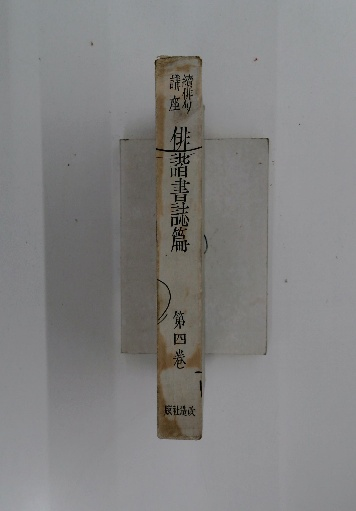 續俳句
講座
俳諧書誌篇
第四卷
改造社版